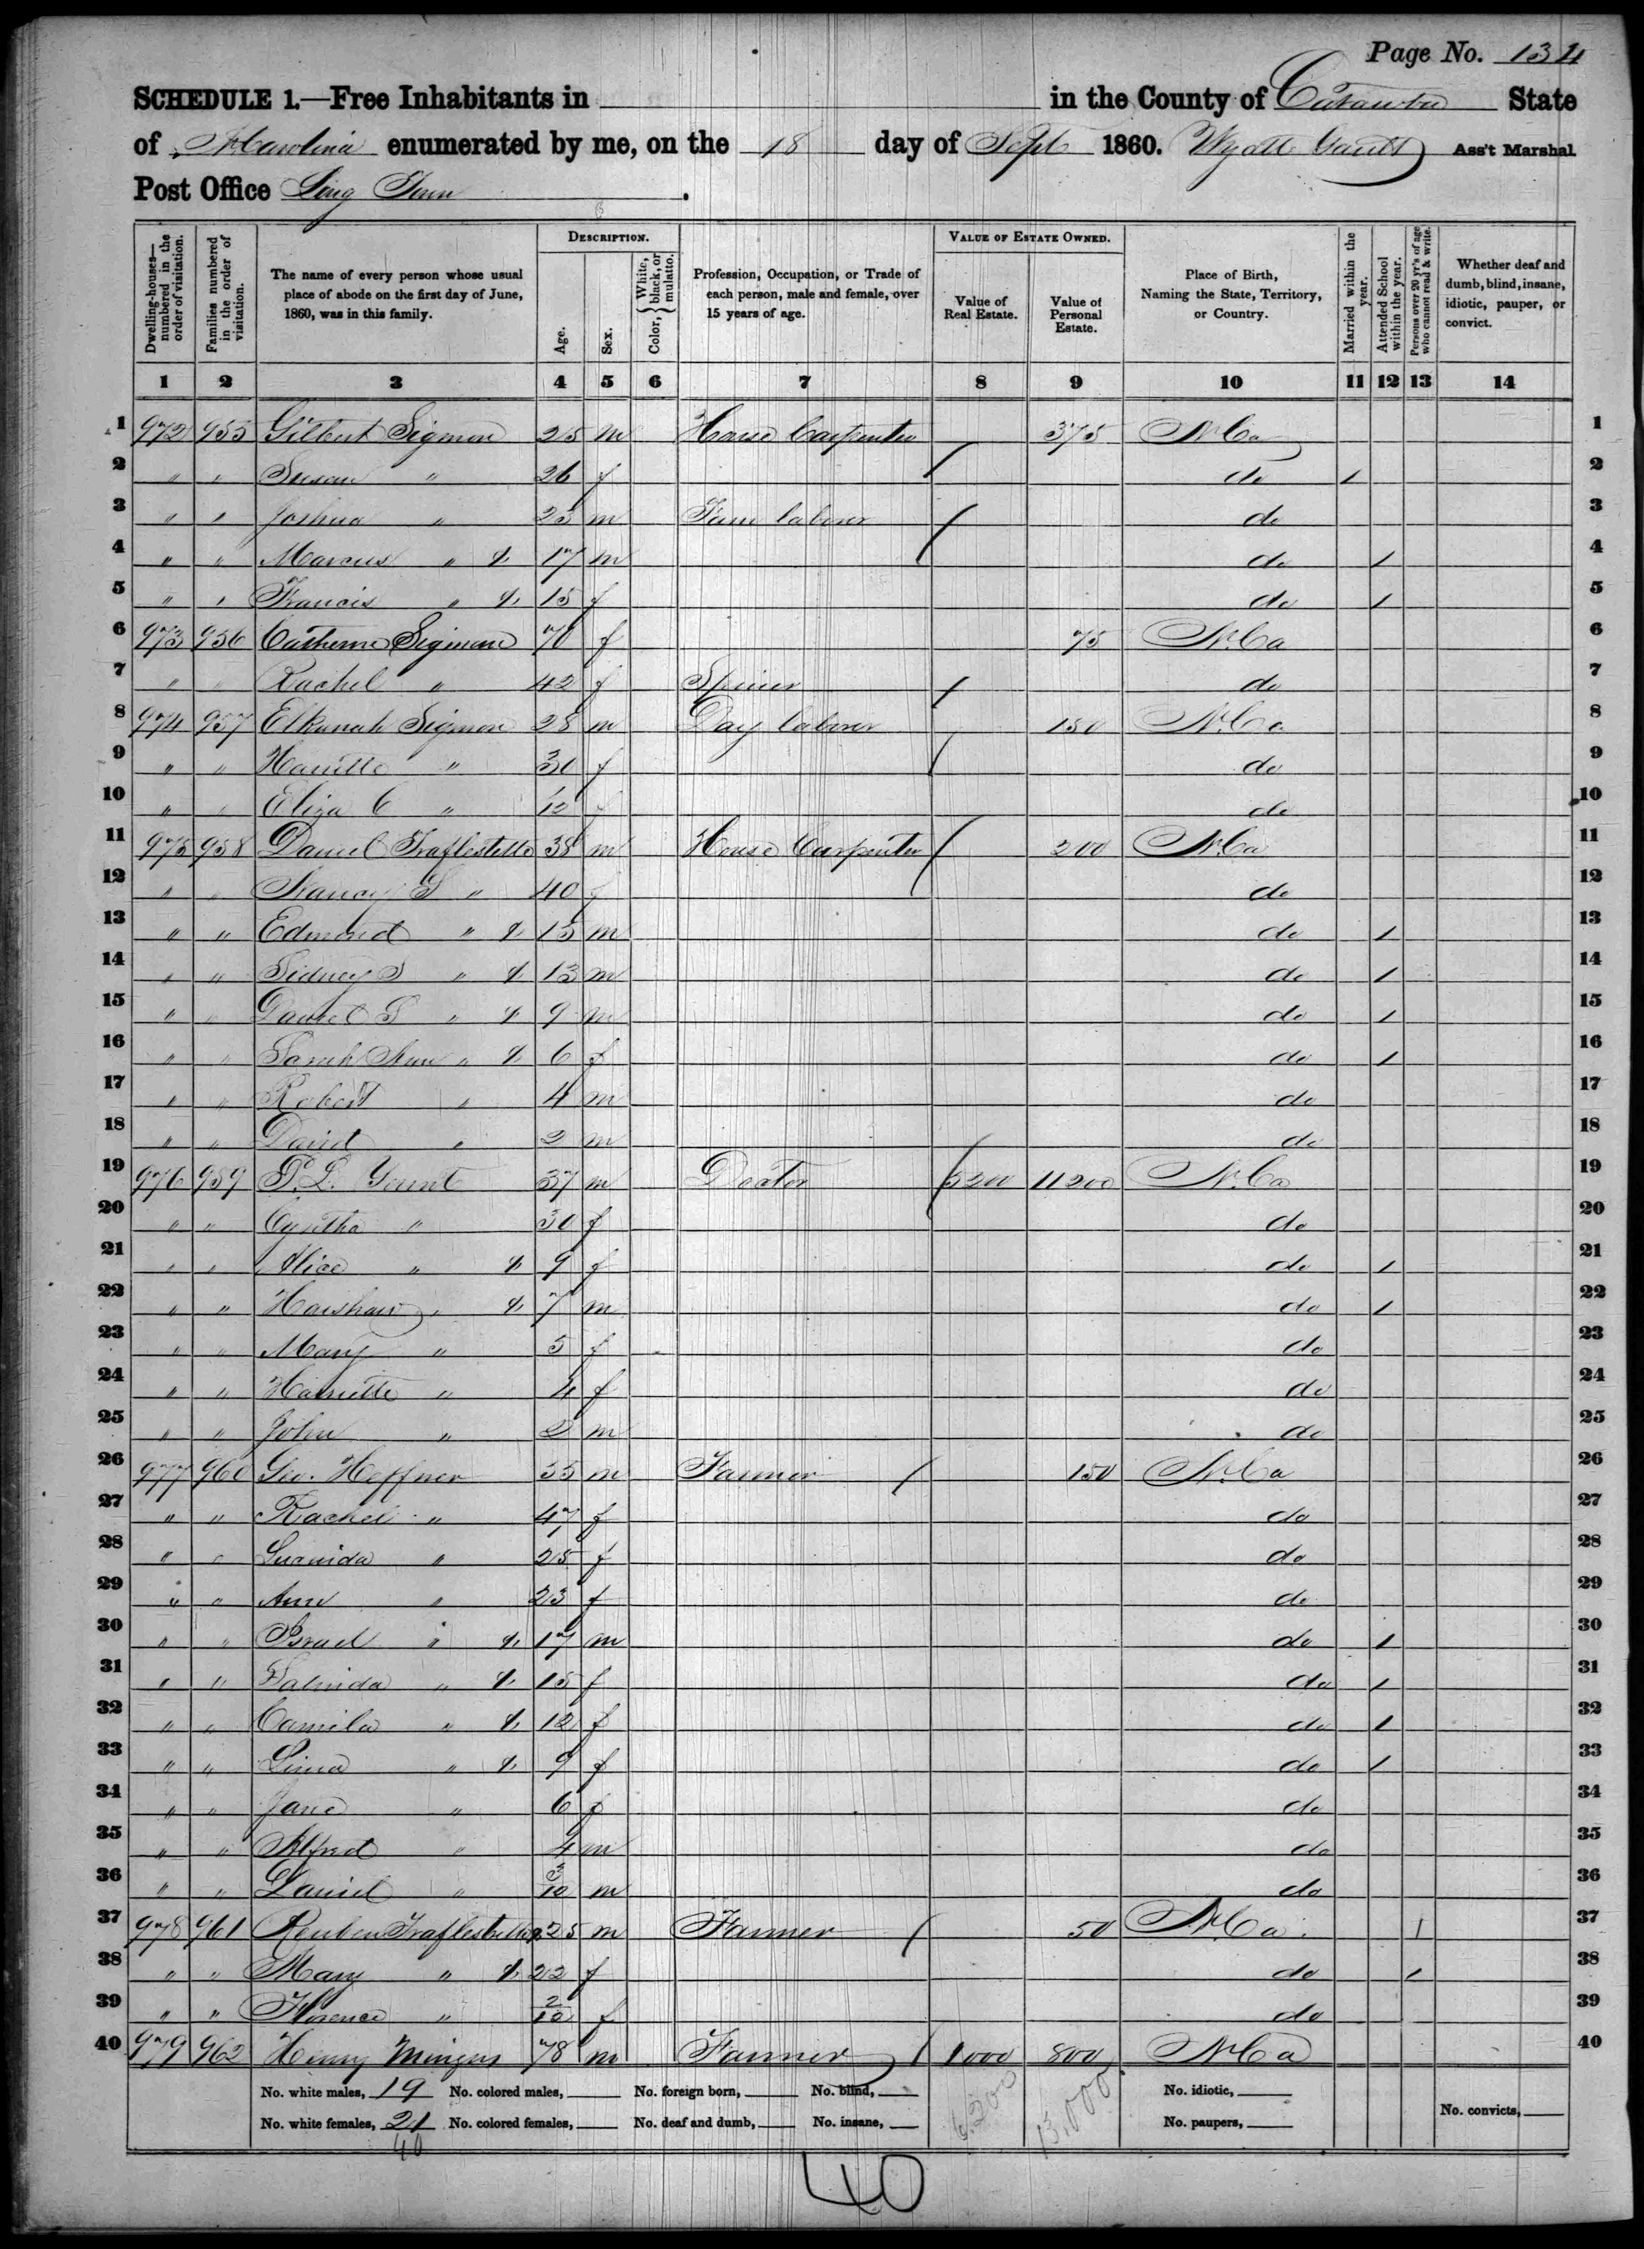 Page No. 134
SCHEDULE 1.—Free Inhabitants in in the County of Catawba State
of N. Carolina enumerated by me, on the 18 day of Sept 1860. Wyatt Gantt Ass't Marshal
Post Office Long Town.
Dwelling-houses—numbered in the order of visitation. Families numbered in the order of visitation. The name of every person whose usual place of abode on the first day of June, 1860, was in this family. DESCRIPTION. Age. Sex. Color, { White, black, or mulatto. Profession, Occupation, or Trade of each person, male and female, over 15 years of age. VALUE OF ESTATE OWNED. Value of Real Estate. Value of Personal Estate. Place of Birth, Naming the State, Territory, or Country. Married within the year. Attended School within the year. Persons over 20 yr's of age who cannot read & write. Whether deaf and dumb, blind, insane, idiotic, pauper, or convict.
1 2 3 4 5 6 7 8 9 10 11 12 13 14
1 972 955 Gilbert Sigmon 25 m House Carpenter 375 N. Ca 1
2 " " Susan " 26 f do / 2
3 " " Joshua " 23 m Farm laborer do 3
4 " " Marcus " 17 m do / 4
5 " " Francis " 15 f do / 5
6 973 956 Catherine Sigmon 70 f 75 N. Ca 6
7 " " Rachel " 42 f Spiner do 7
8 974 957 Elkanah Sigmon 28 m Day laborer 150 N. Ca 8
9 " " Harritte " 30 f do 9
10 " " Eliza C " 1/12 f do 10
11 975 958 Daniel Traflestette 38 m House Carpenter 200 N. Ca 11
12 " " Nancy S " 40 f do 12
13 " " Edmond " 15 m do / 13
14 " " Sidney S " 13 m do / 14
15 " " Daniel S " 9 m do / 15
16 " " Sarah Ann " 6 f do / 16
17 " " Robert " 4 m do 17
18 " " David " 2 m do 18
19 976 959 Yount 37 m Doctor 5200 11200 N. Ca 19
20 " " Cyntha " 30 f do 20
21 " " Alice " 9 f do / 21
22 " " Harshaw " 7 m do / 22
23 " " Mary " 5 f do 23
24 " " Harriette " 4 f do 24
25 " " John " 2 m do 25
26 977 960 Geo. Hoffner 55 m Farmer 150 N. Ca 26
27 " " Rachel " 47 f do 27
28 " " " 25 f do 28
29 " " Ann " 23 f do 29
30 " " Israel " 17 m do / 30
31 " " " 15 f do / 31
32 " " Camila " 12 f do / 32
33 " " " 9 f do / 33
34 " " Jane " 6 f do 34
35 " " Alfred " 4 m do 35
36 " " Daniel " 3/10 m do 36
37 978 961 Reuben Traflestette 25 m Farmer 50 N. Ca / 37
38 " " Mary " 22 f do / 38
39 " " Florence " 2/10 f do 39
40 979 962 Henry Minges 78 m Farmer 1000 800 N. Ca 40
No. white males, 19 No. colored males, No. foreign born, No. blind, No. idiotic,
No. white females, 21 No. colored females, No. deaf and dumb, No. insane, 6,200 13,000 No. paupers, No. convicts,
40
40